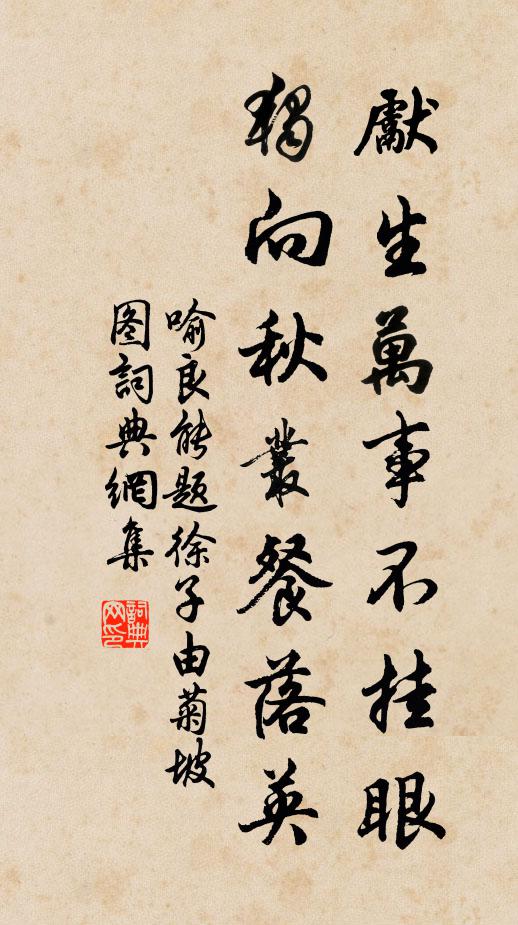 獻生萬事不挂眼
獨向秋叢餐落英
喻良能題徐子由菊坡
图詞典網集
詞典网印